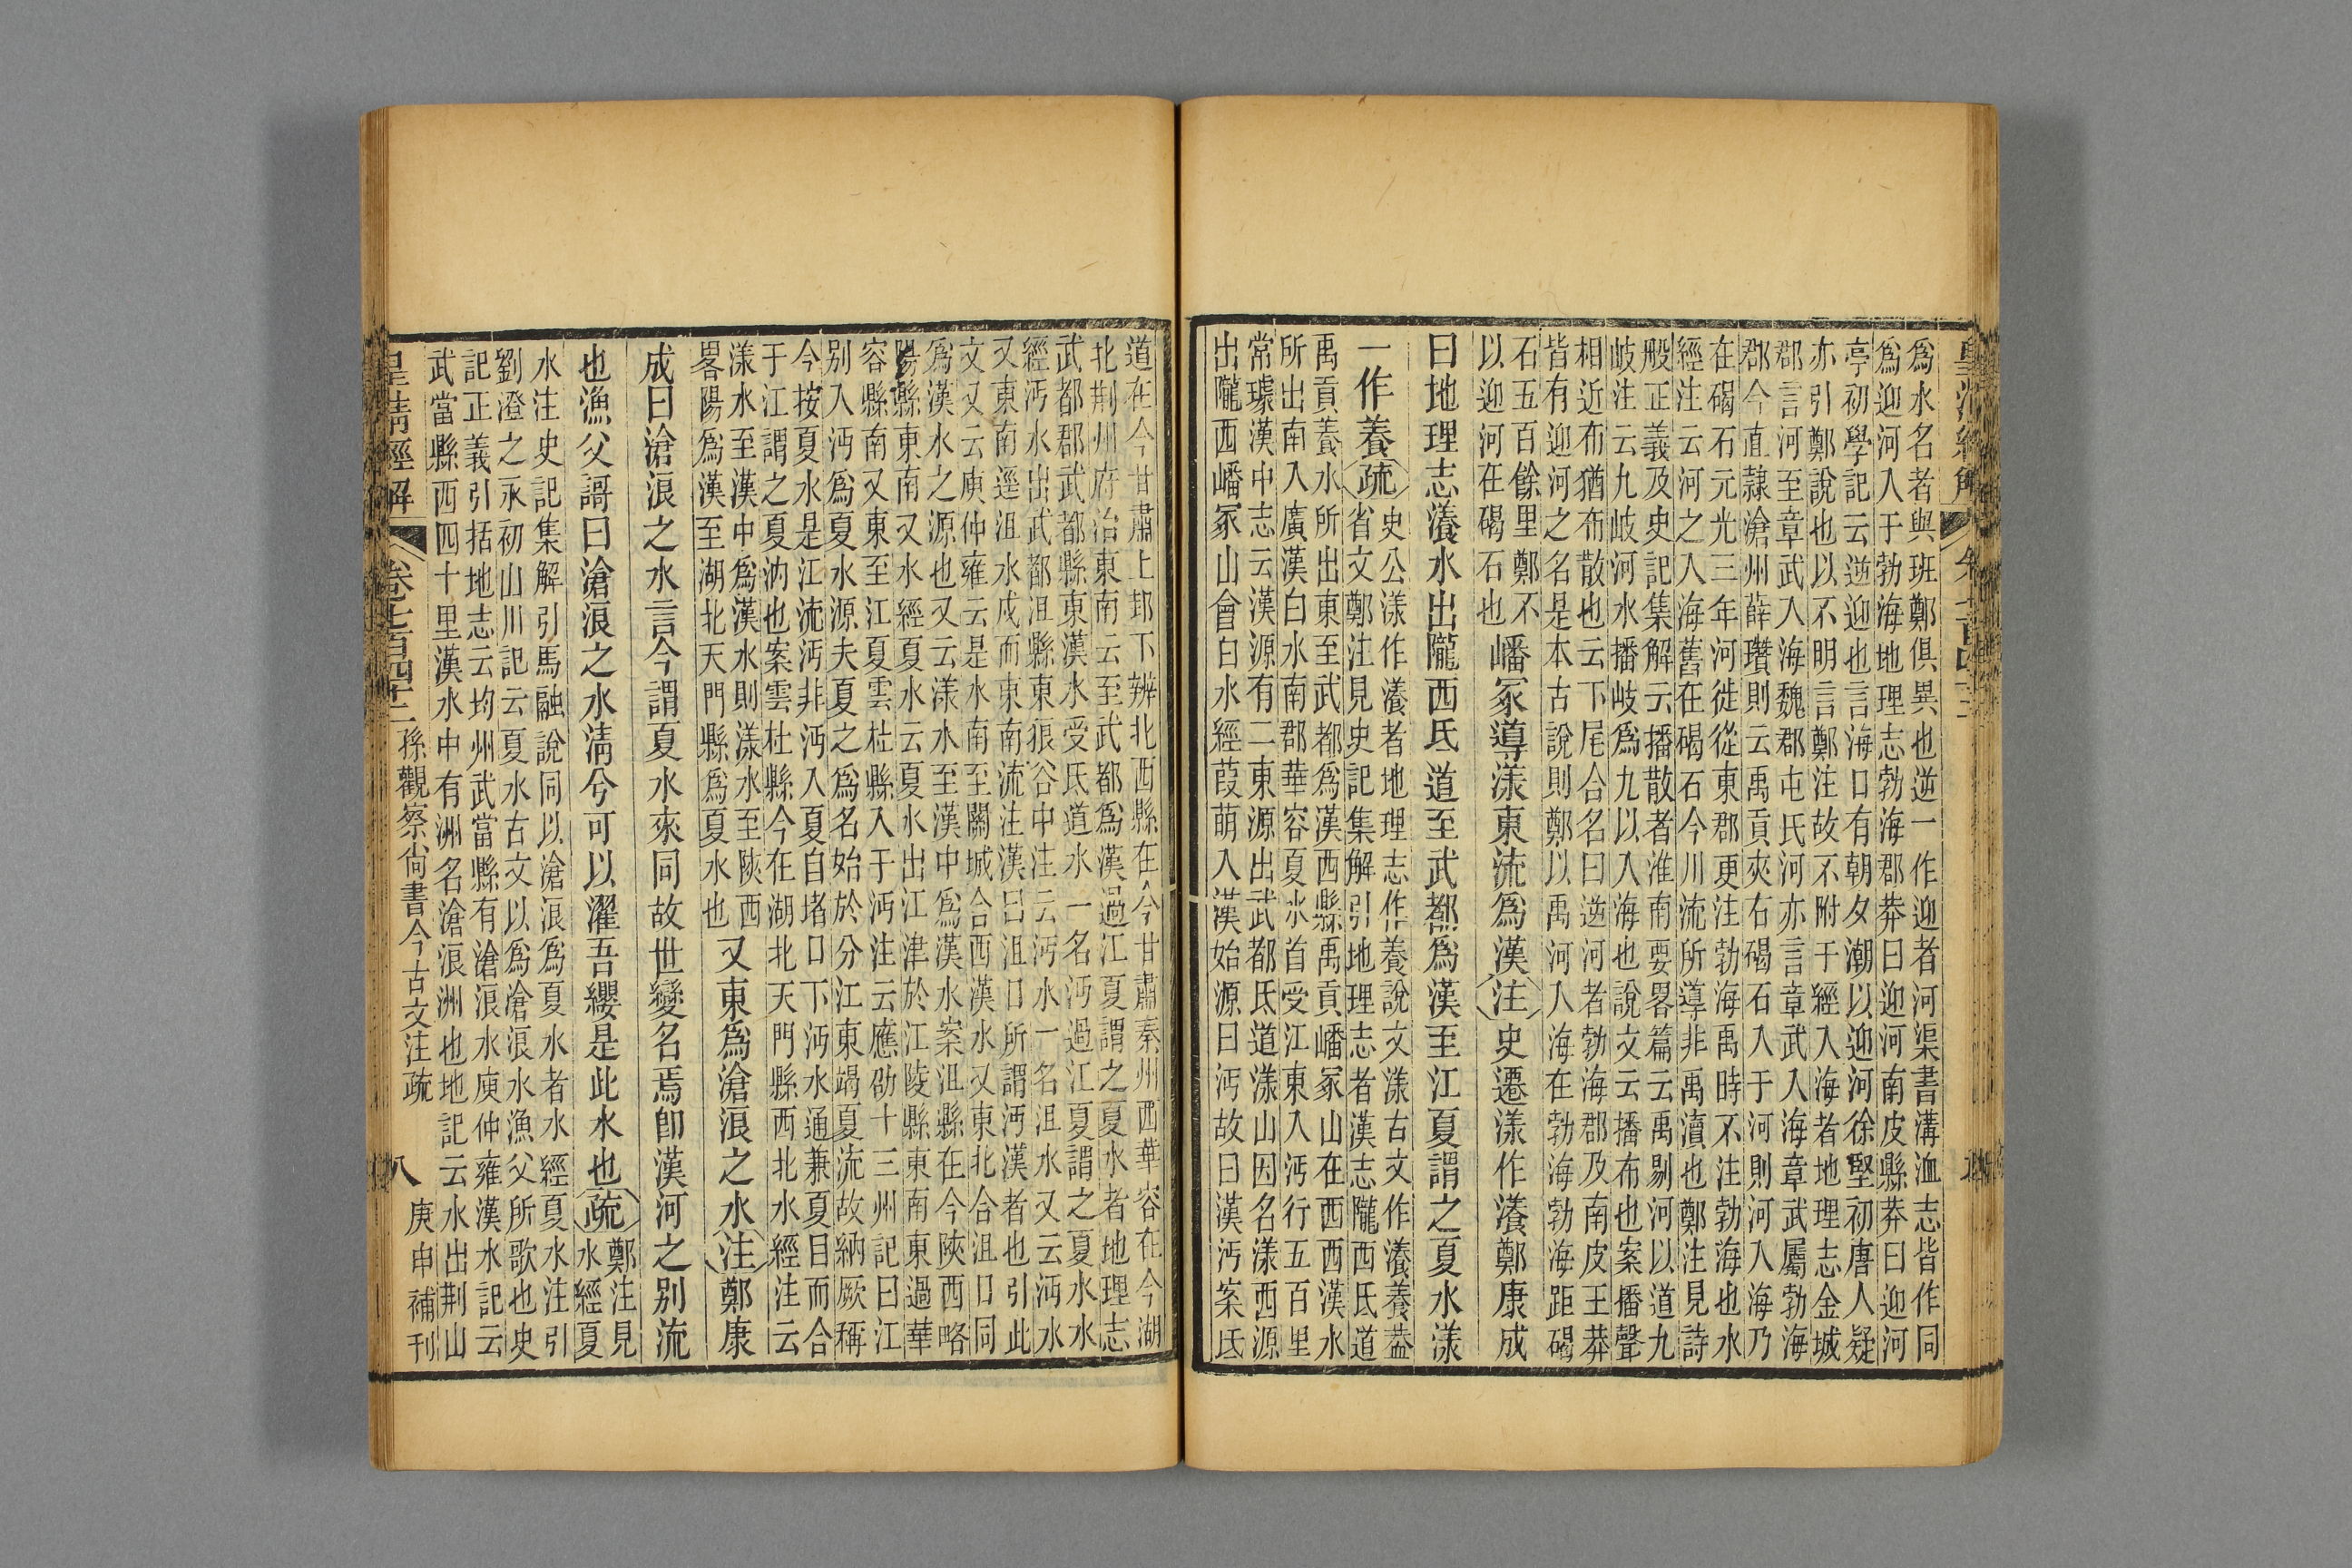 皇清經解
爲水名者與班鄭俱異也逆一作迎者河渠書溝洫志皆作同
爲迎河入于勃海地理志勃海郡莽曰迎河南皮縣莽曰迎河
亭初學記云逆迎也言海口有朝夕潮以迎河徐堅初唐人疑
亦引鄭說也以不明言鄭注故不附于經入海者地理志金城
郡言河至章武入海魏郡屯氏河亦言章武入海章武屬勃海
郡今直隸滄州薛瓚則云禹貢夾右碣石入于河則河入海乃
在碣石元光三年河徙從東郡更注勃海禹時不注勃海也水
經注云河之入海舊在碣石今川流所導非禹瀆也鄭注見詩
般正義及史記集解云播散者淮南要畧篇云禹剔河以道九
岐注云九岐河水播岐爲九以入海也說文云播布也案播聲
相近布猶布散也云下尾合名曰逆河者勃海郡及南皮王莽
皆有迎河之名是本古說則鄭以禹河入海在勃海勃海距碣
石五百餘里鄭不
以迎河在碣石也
嶓冢導漾東流爲漢注史遷漾作瀁鄭康成
曰地理志瀁水出隴西氐道至武都爲漢至江夏謂之夏水漾
一作養疏
史公漾作瀁者地理志作養說文漾古文作瀁養葢
省文鄭注見史記集解引地理志者漢志隴西氐道
禹貢養水所出東至武都爲漢西縣禹貢嶓冢山在西西漢水
所出南入廣漢白水南郡華容夏水首受江東入沔行五百里
常璩漢中志云漢源有二東源出武都氐道漾山因名漾西源
出隴西嶓冢山會白水經葭萌入漢始源曰沔故曰漢沔案氐
道在今甘肅上邽下辨北西縣在今甘肅秦州西華容在今湖
北荆州府治東南云至武都爲漢過江夏謂之夏水者地理志
武都郡武都縣東漢水受氐道水一名沔過江夏謂之夏水水
經沔水出武都沮縣東狼谷中注云沔水一名沮水又云沔水
又東南逕沮水戍而東南流注漢曰沮口所謂沔漢者也引此
文又云庾仲雍云是水南至關城合西漢水又東北合沮口同
爲漢水之源也又云漾水至漢中爲漢水案沮縣在今陝西略
陽縣東南又水經夏水云夏水出江津於江陵縣東南東過華
容縣南又東至江夏雲杜縣入于沔注云應劭十三州記曰江
別入沔爲夏水源夫夏之爲名始於分江東竭夏流故納厥稱
今按夏水是江流沔非沔入夏自堵口下沔水通兼夏目而合
于江謂之夏汭也案雲杜縣今在湖北天門縣西北水經注云
漾水至漢中爲漢水則漾水至陝西
畧陽爲漢至湖北天門縣爲夏水也
又東爲滄浪之水注鄭康
成曰滄浪之水言今謂夏水來同故世變名焉卽漢河之別流
也漁父謌曰滄浪之水淸兮可以濯吾纓是此水也疏
鄭注見
水經夏
水注史記集解引馬融說同以滄浪爲夏水者水經夏水注引
劉澄之永初山川記云夏水古文以爲滄浪水漁父所歌也史
記正義引括地志云均州武當縣有滄浪水庾仲雍漢水記云
武當縣西四十里漢水中有洲名滄浪洲也地記云水出荆山
皇清經解 卷七百四十二 孫觀察尙書今古文注疏 八 庚申補刊